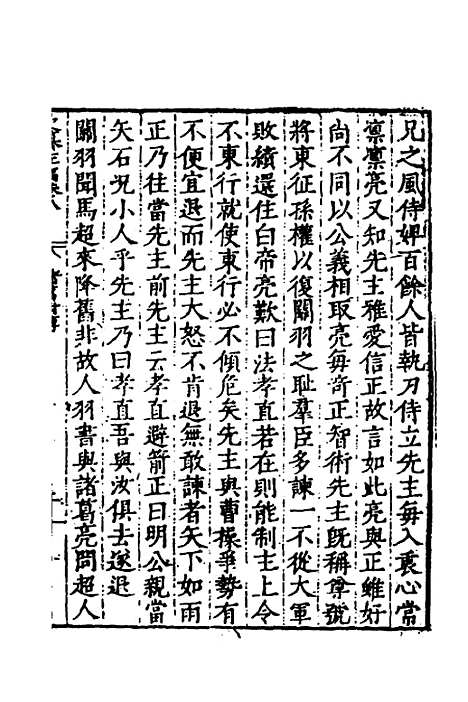 兄之風侍婢百餘人皆執刀侍立先主每入衷心常
凛凛亮又知先主雅愛信正故言如此亮與正雖好
尚不同以公義相取亮每竒正智術先主旣稱尊號
將東征孫權以復關羽之耻羣臣多諫一不從大軍
敗績還住白帝亮歎曰法孝直若在則能制主上令
不東行就使東行必不傾危矣先主與曹操爭勢有
不便宜退而先主大怒不肯退無敢諫者矢下如雨
正乃往當先主前先主云孝直避箭正曰明公親當
矢石况小人乎先主乃曰孝直吾與汝俱去遂退
關羽聞馬超來降舊非故人羽書與諸葛亮問超人